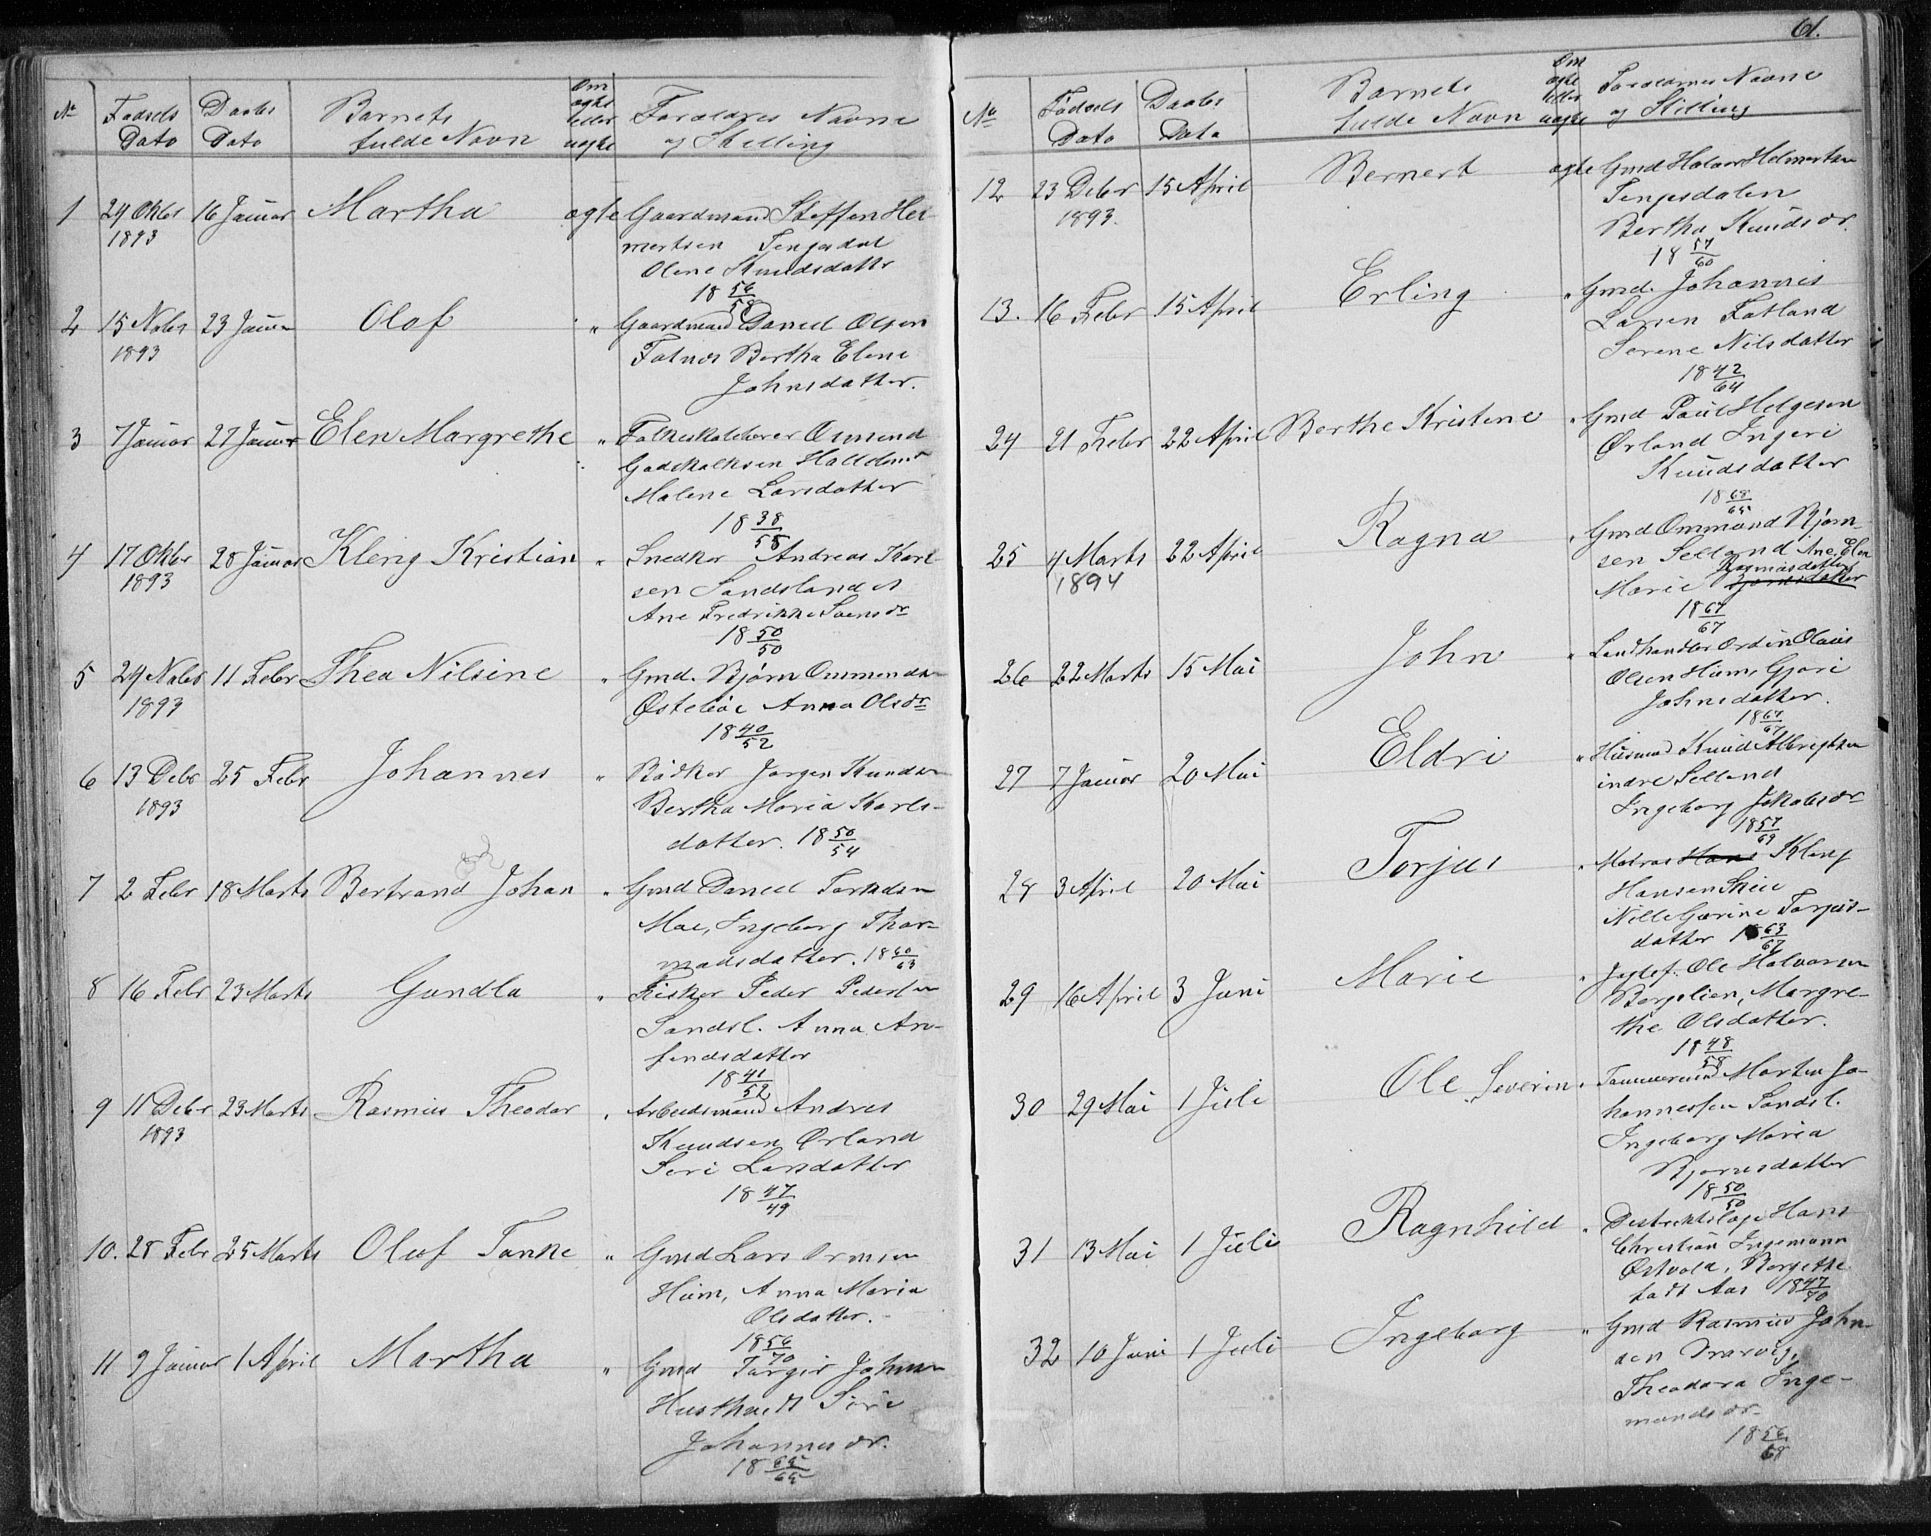 No
Fødsels
Dato
Daabs
Dato
Barnets
fulde Navn
Om
ægte
eller
uægte
Forældres Navne
og Stilling
1 29 Oktbr 16 Januar Martha ægte Gaardmand Steffen Hel-
1893 mertsen Tengesdal
Olene Knudsdattr
18 56/58
2 15 Novbr 23 Januar Olaf " Gaardmand Daniel Olsen
1893 Fatnes Bertha Elene
Johnsdatter.
3 7 Januar 27 Januar Elen Margrethe " Folkeskolelærer Osmund
Godskalksen
Malene Larsdatter
18 38/58
4 17 Oktbr 28 Januar Kleng Kristian " Snedker Andreas Karl-
1893 sen Sandsland
Ane Fredrikke Svensdr
18 50/50
5 29 Novbr 11 Febr Thea Nilsine " Gmd. Bjørn Ommundsn
1893 Østebøe Anna Olsdr
18 40/52
6 13 Debr 25 Febr Johannes " Bødker Jørgen Knudsn
1893 Bertha Maria Karls-
datter. 18 50/54
7 2 Febr 18 Marts Bertrand Johan " Gmd Daniel
Moe, Ingeborg Thor-
madsdatter. 18 60/63
8 16 Febr 23 Marts Gundla " Fisker Peder Pedersen
Sandsl. Anna An-
fendsdatter
18 41/52
9 11 Debr 23 Marts Rasmus Theodor " Arbeidsmand Andres
1893 Knudsen Ørland
Siri Larsdatter
18 47/49
10. 28 Febr 25 Marts Oluf Tanke " Gmd Lars Ormsen
Hiim, Anna Maria
Olsdatter.
18 56/70
11 9 Januar 1 April Martha " Gmd Torger Johnsn
Hustvedt Siri
Johannesdr.
18
61.
No
Fødsels
Dato
Daabs
Dato
Barnets
fulde Navn
Om
ægte
eller
uægte
Forældrenes Navne
og Stilling
12 23 Debr 15 April Bernert ægte Gmd Halvor Helmertsen
1893. Tengesdalen
Bertha Knudsdr.
18 57/60
13. 16 Febr 15 April Erling " Gmd. Johannis
Larsen Fatland
Serene Nilsdatter
18 42/64
24 21 Febr 22 April Berthe Kristene " Gmd Paul Helgesen
Ørland Ingeri
Knudsdatter
18
25 4 Marts 22 April Ragna " Gmd Ommund Bjørn-
1894 sen Selland Ane Elen
Marie Rasmusdatter
18 67/67
26 22 Marts 15 Mai John " Landhandler Ordfør Olaus
Olsen Hiim, Gjøri
Johnsdatter.
18 67/67
27 7 Januar 20 Mai Eldri " Husmd Knud Albrigtsen
indre Selland
Ingeborg Jakobsdr
18 57/69
28 3 April 20 Mai Torjus " Matros Hans Kleng
Hansen
Nille Gurine Torjus-
datter 18 63/67
29 16 April 3 Juni Marie " Ole Halvorsen
Borgelien, Margre-
the Olsdatter.
18 48/58
30 29 Mai 1 Juli Ole Severin " Tømmermd Morten Jo-
hannessen Sandsl.
Ingeborg Maria
Bjørnesdatter
18 50/50
31 13 Mai 1 Juli Ragnhild " Distriktslæge Hans
Christian Ingemann
Østvold, Borgethe
født Aas 18 47/70
32 10 Juni 1 Juli Ingeborg " Gmd Rasmus John-
sen Drarvig,
Theodora Inge-
mundsdr
18 56/68